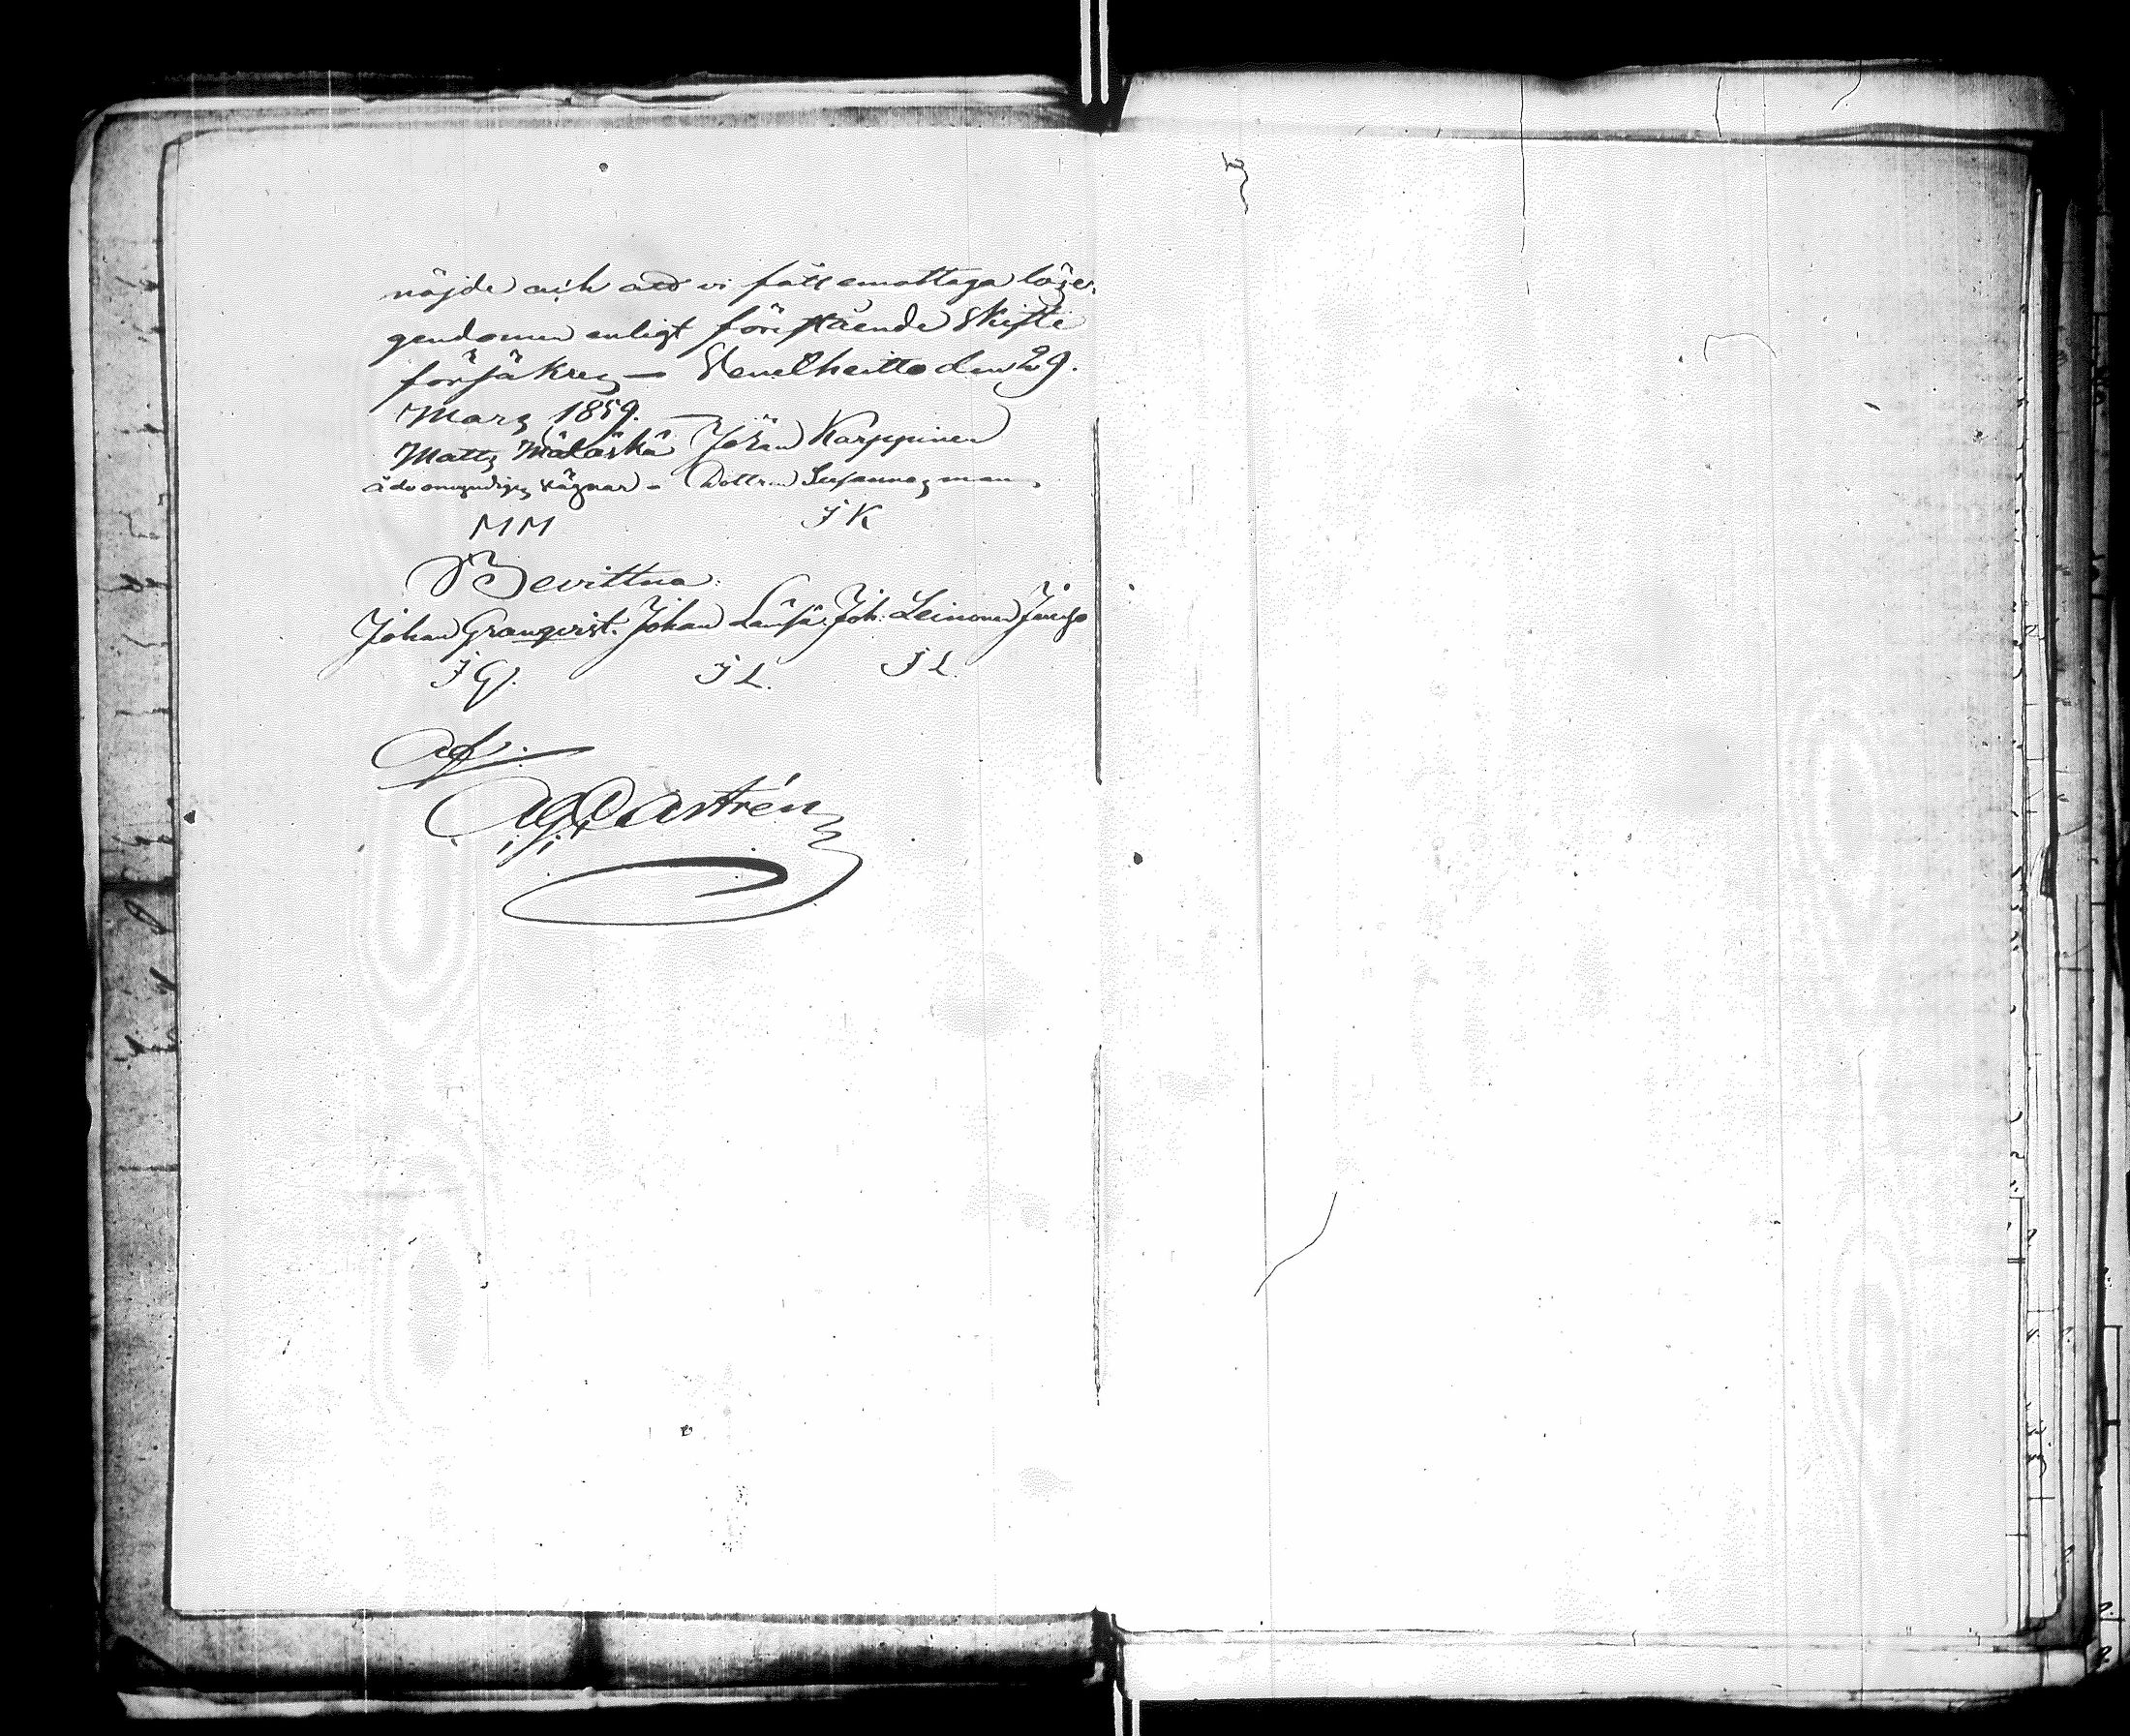 nöjde och att vi fått emottaga löse-
gendomen enligt förestående Skifte
försäkras — den 29.
Mars 1859. —
Matts Mäläskä Johan Karppinen
å de omyndiges vägnar - Dottren Susannas man
MM JK
Bevittna:
Johan Granqvist. Johan Joh: Leinonen
JG. JL. JL.
Castrén